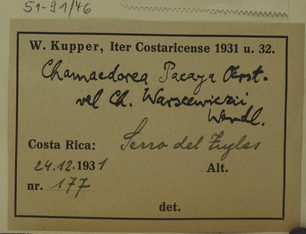 51-91/46
W. Kupper, Iter Costaricense 1931 u. 32.
Chamaedorea Pacaya Oerst.
vel Ch. Warscewiczii
Wendl.
Costa Rica: Serro del
24.12.1931 Alt.
nr. 177
det.